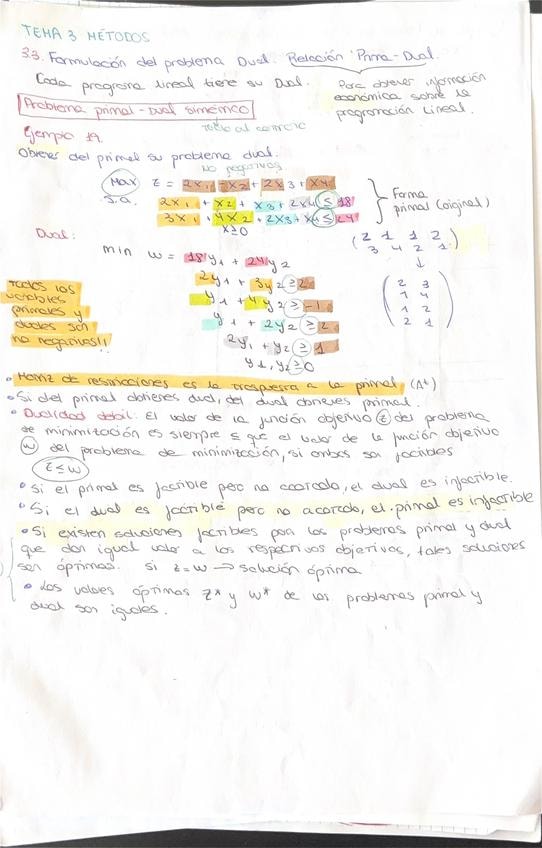 TEMA 3 MÉTODOS
3.3. Formulación del problema Dual. Relación Prima-Dual.
Cada programa lineal tiene su Dual.
Para obtener información
económica sobre la
programación Lineal.
Problema primal-Dual simétrico
todo al contrario
Ejemplo 19.
Obtener del primal su problema dual.
no negativas
Max z = 2x1 - x2 + 2x3 + x4
s.a. 2x1 + x2 + x3 + 2x4 ≤ 18
3x1 + 4x2 + 2x3 + x4 ≤ 24
x≥0
Forma
primal (original)
Dual:
(2 1 1 2
3 4 2 1)
↓
(2 3
1 4
1 2
2 1)
min w = 18y1 + 24y2
2y1 + 3y2 ≥ 2
y1 + 4y2 ≥ -1
y1 + 2y2 ≥ 2
2y1 + y2 ≥ 1
y1, y2 ≥ 0
Todas las
variables
primales y
duales son
no negativas!!
• Matriz de restricciones es la traspuesta a la primal (At)
• Si del primal obtienes dual, del dual obtienes primal.
• Dualidad débil: El valor de la función objetivo z del problema
de minimización es siempre ≤ que el valor de la función objetivo
w del problema de minimización, si ambos son factibles
z ≤ w
• Si el primal es factible pero no acotado, el dual es infactible.
• Si el dual es factible pero no acotado, el primal es infactible
• Si existen soluciones factibles para los problemas primal y dual
que dan igual valor a los respectivos objetivos, tales soluciones
son óptimas. Si z = w → solución óptima
• Los valores óptimos z* y w* de los problemas primal y
dual son iguales.